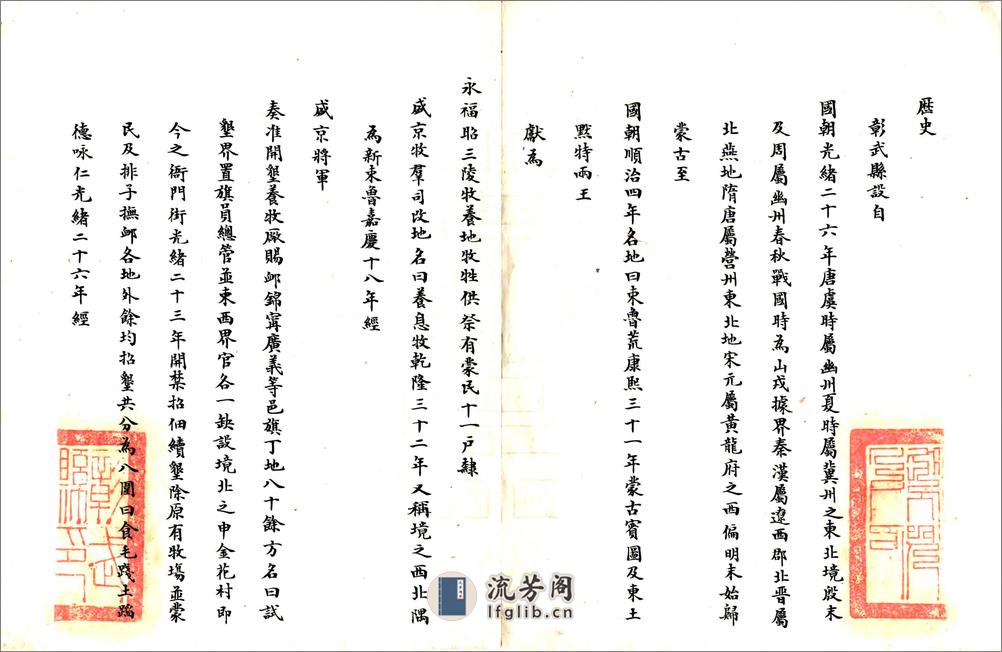 歷史
彰武縣設自
國朝光緒二十六年唐虞時屬幽州夏時屬冀州之東北境殷末
及周屬幽州春秋戰國時為山戎據界秦漢屬遼西郡北晋屬
北燕地隋唐屬營州東北地宋元屬黃龍府之西偏明末始歸
蒙古至
國朝順治四年名地曰東魯荒康熙三十一年蒙古賓圖及東土
黙特兩王
獻為
永福昭三陵牧養地牧牲供祭有蒙民十一戶隸
盛京牧羣司改地名曰養息牧乾隆三十二年又稱境之西北隅
為新東魯嘉慶十八年經
盛京將軍
奏准開墾養牧厰賜邺錦甯廣義等邑旗丁地八十餘方名曰試
墾界置旗員總管並東西界官各一缺設境北之申金花村即
今之衙門街光緒二十三年開禁招佃續墾除原有牧塲並蒙
民及排子撫邺各地外餘均招墾共分為八圍曰食毛踐土蹈
德咏仁光緒二十六年經
流芳阁
lfglib.cn